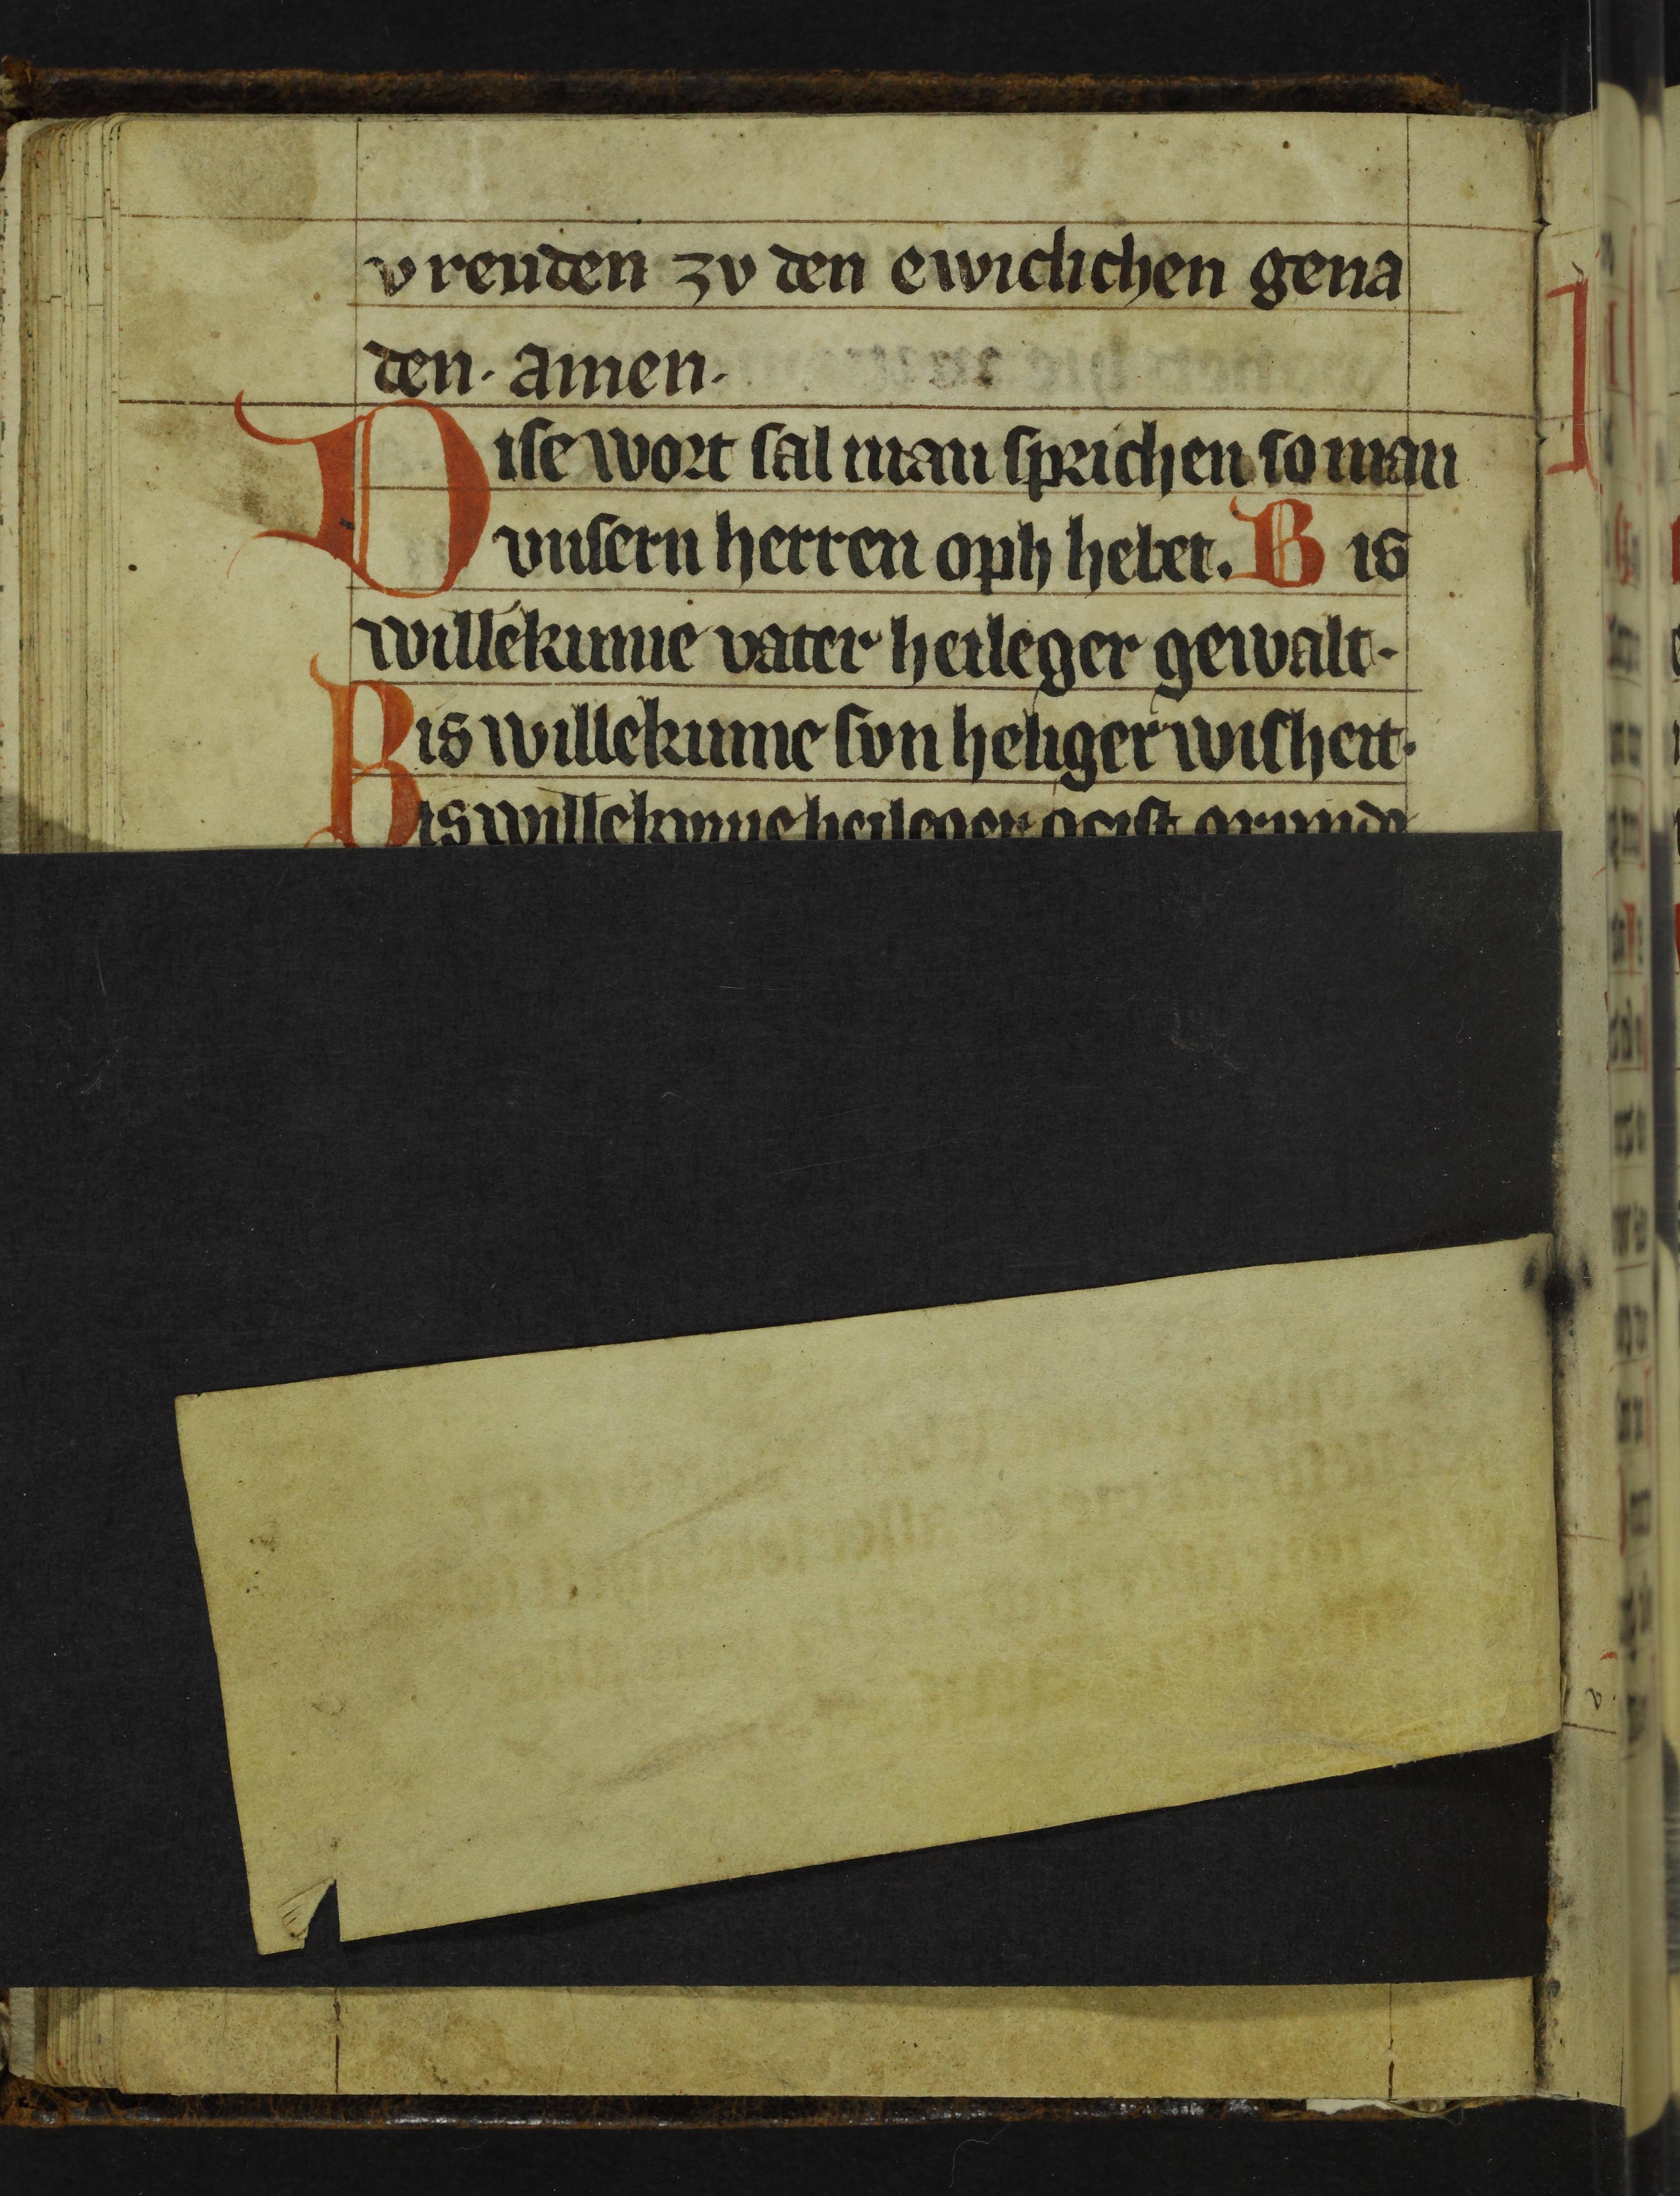 vreuden zv den ewiclichen gena
den· amen·
Dise wort sal man sprichen so man
vnsern herren oph hebet. Bis
willekume vater heileger gewalt·
Bis willekume svn heliger wisheit·
Bis willekume heileger geist grunde